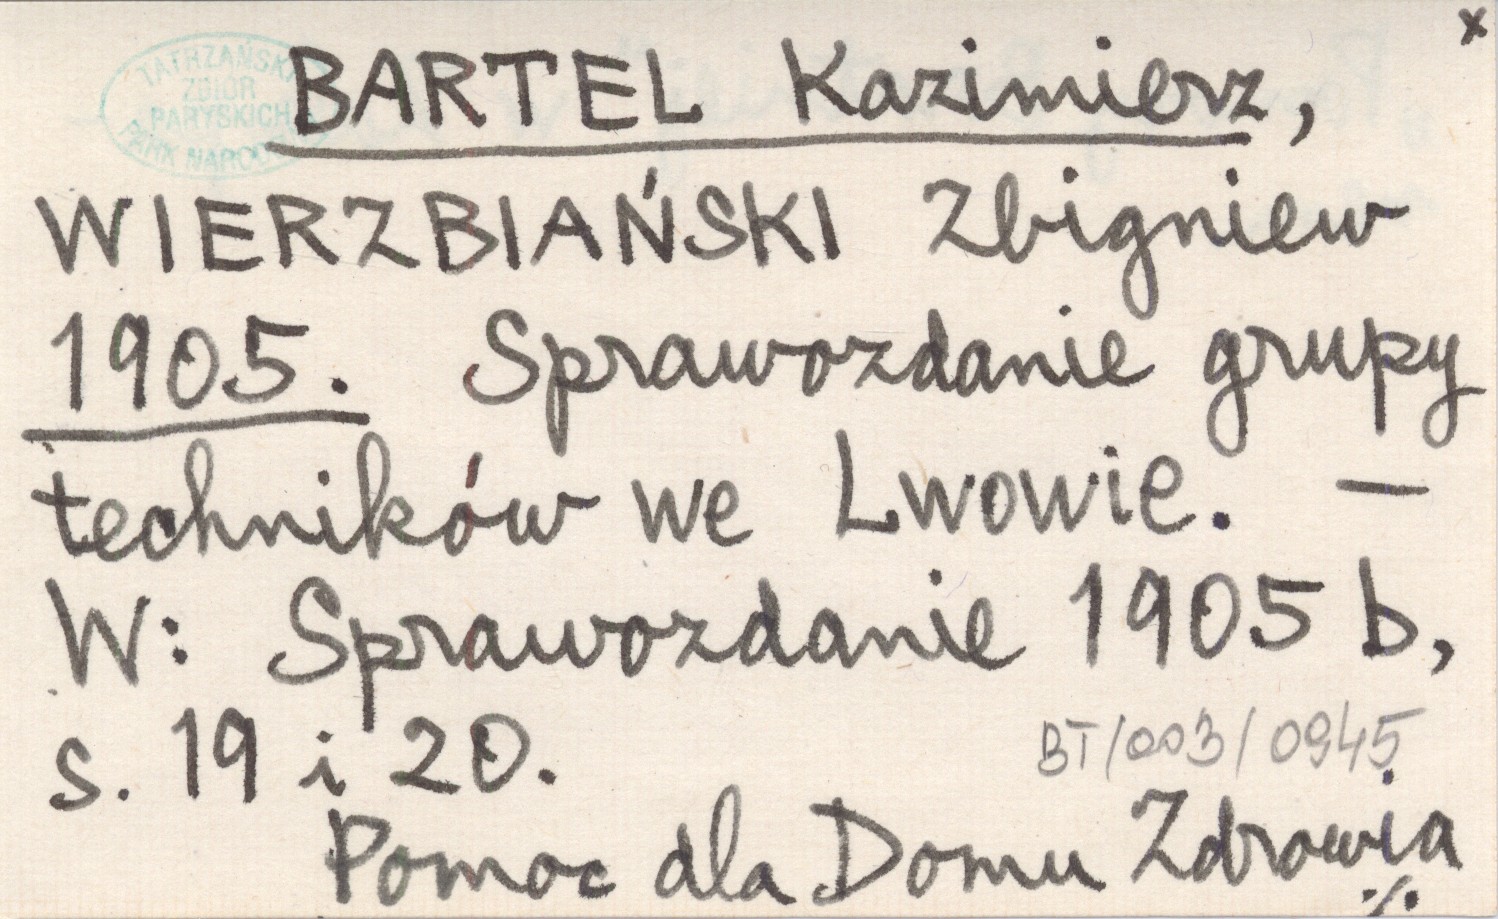 x
TATRZAŃSKI
ZBIÓR
PARYSKICH
PARK NARODOWY
BARTEL Kazimierz,
WIERZBIAŃSKI Zbigniew
1905. Sprawozdanie grupy
techników we Lwowie. —
W: Sprawozdanie 1905 b,
s. 19 i 20.
BT/003/0945
Pomoc dla Domu Zdrowia
./.